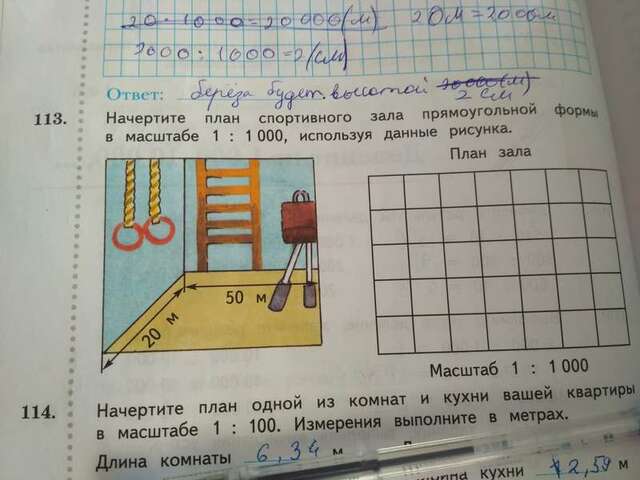 20 · 1000 = 20000 (м) 20м = 2000см
2000 : 1000 = 2 (см)
Ответ: берёза будет высотой 20000 (м)
2 см
113. Начертите план спортивного зала прямоугольной формы
в масштабе 1 : 1 000, используя данные рисунка.
План зала
50 м
20 м
Масштаб 1 : 1 000
114. Начертите план одной из комнат и кухни вашей квартиры
в масштабе 1 : 100. Измерения выполните в метрах.
Длина комнаты 6,34 м
кухни 12,59 м